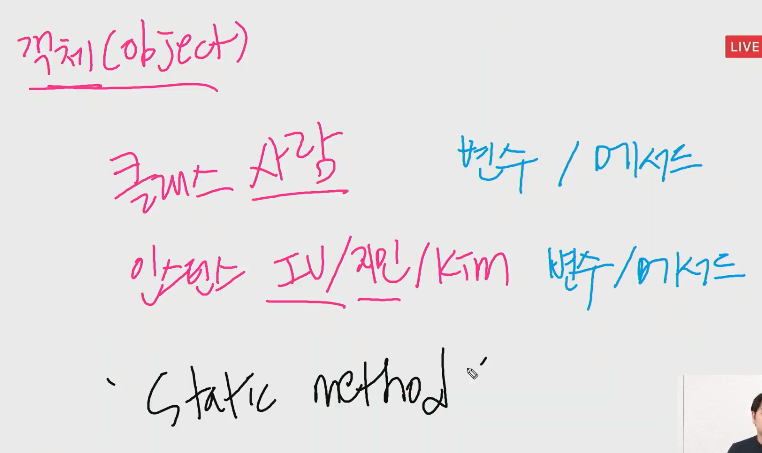 객체(object)
LIVE
클래스 사람 변수 / 메서드
인스턴스 IU/지민/Kim 변수/메서드
' Static method '